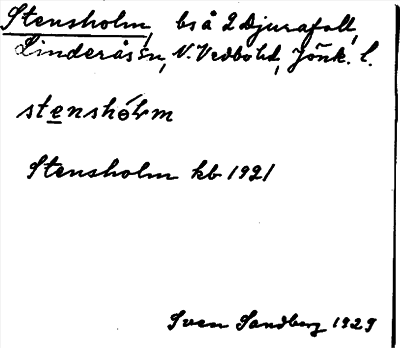 Stensholm, bs å 2 Djurafall,
Linderås sn, N. Vedbo hd, Jönk. l.
stenshólm
Stensholm kb 1921
Sven Sandberg 1929